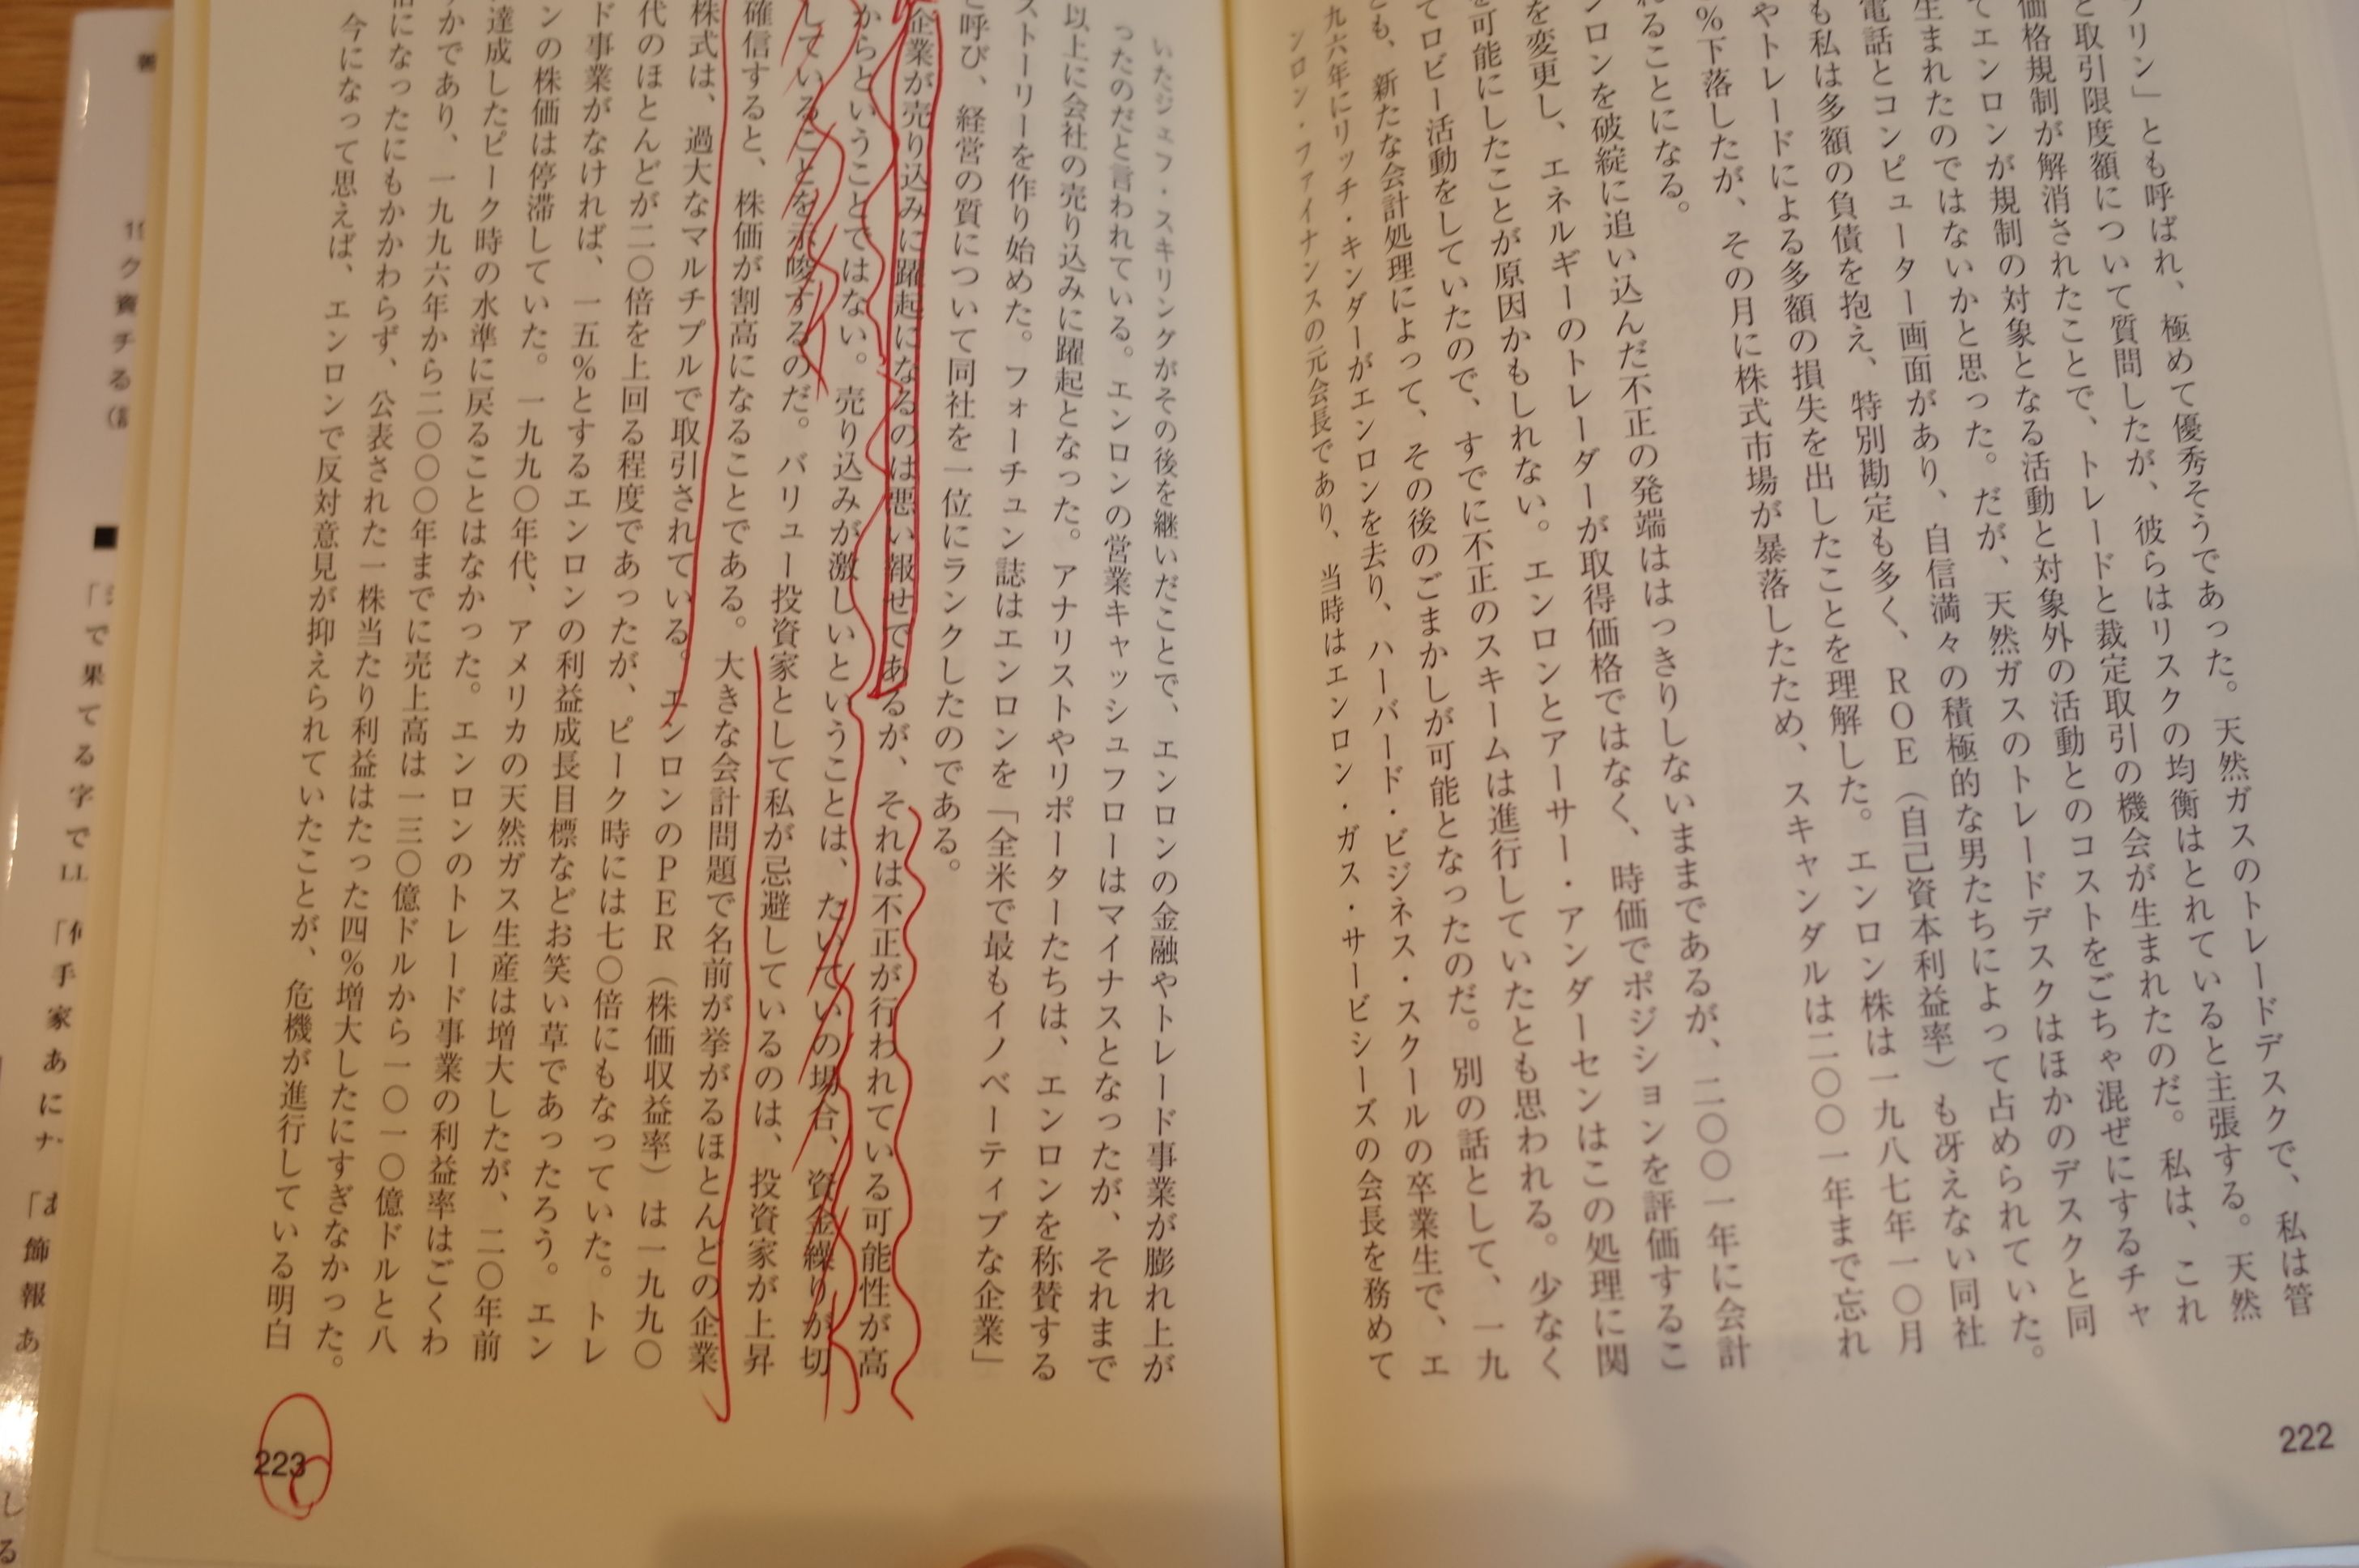 プリン」とも呼ばれ、極めて優秀そうであった。天然ガスのトレードデスクで、私は管
と取引限度額について質問したが、彼らはリスクの均衡はとれていると主張する。天然
価格規制が解消されたことで、トレードと裁定取引の機会が生まれたのだ。私は、これ
てエンロンが規制の対象となる活動と対象外の活動とのコストをごちゃ混ぜにするチャ
生まれたのではないかと思った。だが、天然ガスのトレードデスクはほかのデスクと同
電話とコンピューター画面があり、自信満々の積極的な男たちによって占められていた。
も私は多額の負債を抱え、特別勘定も多く、ROE（自己資本利益率）も冴えない同社
やトレードによる多額の損失を出したことを理解した。エンロン株は一九八七年一〇月
%下落したが、その月に株式市場が暴落したため、スキャンダルは二〇〇一年まで忘れ
れることになる。
ンロンを破綻に追い込んだ不正の発端ははっきりしないままであるが、二〇〇一年に会計
を変更し、エネルギーのトレーダーが取得価格ではなく、時価でポジションを評価するこ
を可能にしたことが原因かもしれない。エンロンとアーサー・アンダーセンはこの処理に関
てロビー活動をしていたので、すでに不正のスキームは進行していたとも思われる。少なく
とも、新たな会計処理によって、その後のごまかしが可能となったのだ。別の話として、一九
九六年にリッチ・キンダーがエンロンを去り、ハーバード・ビジネス・スクールの卒業生で、エ
ンロン・ファイナンスの元会長であり、当時はエンロン・ガス・サービシーズの会長を務めて
222
いたジェフ・スキリングがその後を継いだことで、エンロンの金融やトレード事業が膨れ上が
ったのだと言われている。エンロンの営業キャッシュフローはマイナスとなったが、それまで
以上に会社の売り込みに躍起となった。アナリストやリポーターたちは、エンロンを称賛する
ストーリーを作り始めた。フォーチュン誌はエンロンを「全米で最もイノベーティブな企業」
と呼び、経営の質について同社を一位にランクしたのである。
企業が売り込みに躍起になるのは悪い報せであるが、それは不正が行われている可能性が高
からということではない。売り込みが激しいということは、たいていの場合、資金繰りが切
していることを示唆するのだ。バリュー投資家として私が忌避しているのは、投資家が上昇
確信すると、株価が割高になることである。大きな会計問題で名前が挙がるほとんどの企業
株式は、過大なマルチプルで取引されている。エンロンのPER（株価収益率）は一九九〇
代のほとんどが二〇倍を上回る程度であったが、ピーク時には七〇倍にもなっていた。トレ
ド事業がなければ、一五%とするエンロンの利益成長目標などお笑い草であったろう。エン
ンの株価は停滞していた。一九九〇年代、アメリカの天然ガス生産は増大したが、二〇年前
達成したピーク時の水準に戻ることはなかった。エンロンのトレード事業の利益率はごくわ
かであり、一九九六年から二〇〇〇年までに売上高は一三〇億ドルから一〇一〇億ドルと八
倍になったにもかかわらず、公表された一株当たり利益はたった四%増大したにすぎなかった。
今になって思えば、エンロンで反対意見が抑えられていたことが、危機が進行している明白
223